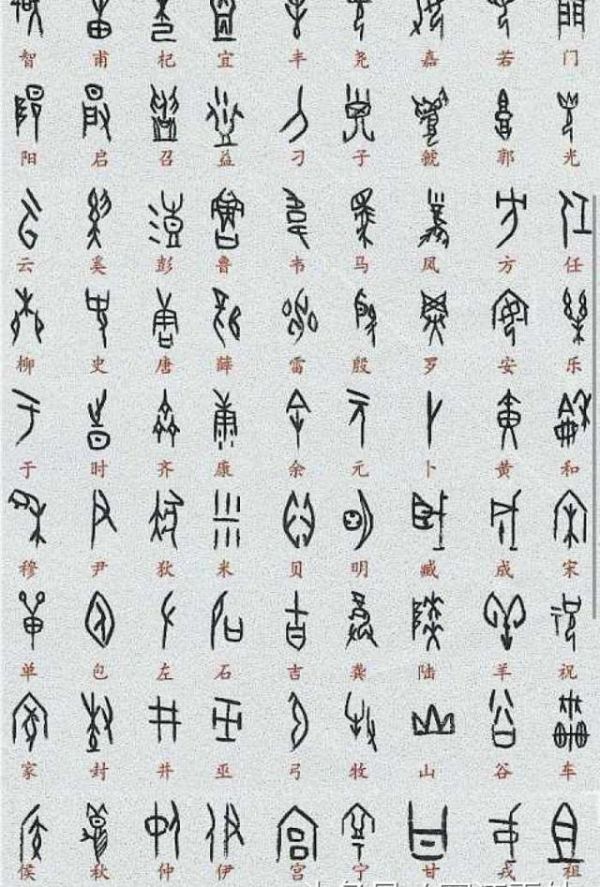 智 甫 杞 宜 丰 尧 嘉 若 门
阳 启 召 益 刁 子 虢 郭 光
云 奚 彭 鲁 韦 马 凤 方 任
柳 史 唐 薛 雷 殷 罗 安 乐
于 时 齐 康 余 元 卜 黄 和
穆 尹 狄 米 贝 明 臧 成 宋
单 包 左 石 吉 龚 陆 羊 祝
家 封 井 巫 弓 牧 山 谷 车
侯 秋 仲 伊 宫 宁 甘 戎 祖